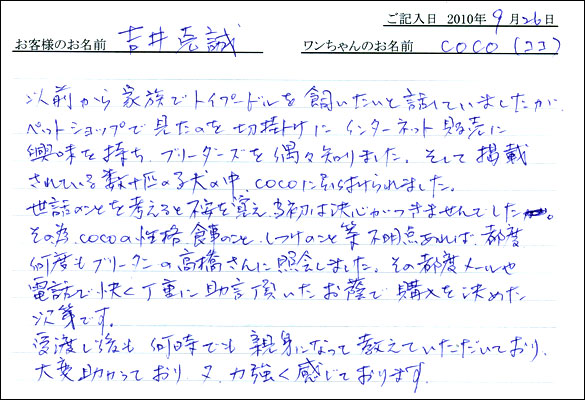 ご記入日 2010年 9月26日
お客様のお名前 吉井亮誠 ワンちゃんのお名前 coco(ココ)
以前から家族でトイプードルを飼いたいと話していましたが、
ペットショップで見たのを切掛けにインターネット販売に
興味を持ち、ブリーダーズを偶々知りました。そして掲載
されている数十匹の子犬の中、cocoに引き付けられました。
世話のことを考えると不安を覚え、当初は決心がつきませんでした。
その為、cocoの性格、食事のこと、しつけのこと等不明点あれば、都度
何度もブリーダーの高橋さんに照会しました。その都度メールや
電話で快く丁重に助言頂いたお蔭で購入を決めた
次第です。
受渡し後も何時でも親身になって教えていただいており、
大変助かっており、又、力強く感じております。